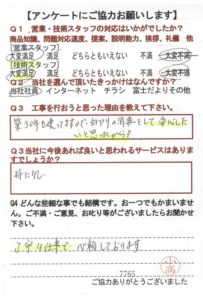 【アンケートにご協力お願いします】
Q１ 営業・技術スタッフの対応はいかがでしたか？
商品知識、問題対応速度、提案、説明能力、挨拶、礼儀 他
【営業スタッフ】
大変満足 満足 どちらともいえない 不満 大変不満
【技術スタッフ】
大変満足 満足 どちらともいえない 不満 大変不満
Q２ 当社を選んで頂いたきっかけはなんですか？
当社社員 インターネット チラシ 富士だよりその他
Q３ 工事を行おうと思った理由を教えて下さい。
築30年も
Q３当社に今後あれば良いと思われるサービスはありますでしょうか？
特になし
Q4 どんな些細な事でも結構です。お一つでもかまいません。ご不満・ご意見、お叱り等がございましたらお聞かせ下さい。
丁寧な仕事で
7765
ご協力ありがとうございました